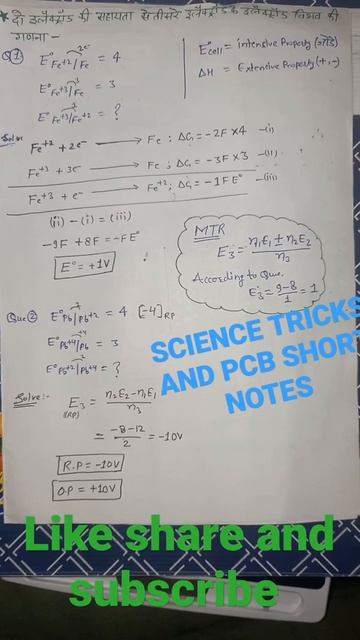 * दो इलेक्ट्रोड की सहायता से तीसरे इलेक्ट्रोड के इलेक्ट्रोड विभव की
गणना -
Q① E°Fe+2/Fe = 4
E°Fe+3/Fe = 3
E°Fe+3/Fe+2 = ?
E°cell = intensive Property
ΔH = Extensive Property (+, -)
Solve
Fe+2 + 2e- → Fe ; ΔG₁ = -2F×4 -(i)
Fe+3 + 3e- → Fe ; ΔG₂ = -3F×3 -(ii)
Fe+3 + e- → Fe+2 ; ΔG₃ = -1FE° -(iii)
(ii) - (i) = (iii)
-9F + 8F = -FE°
E° = +1V
MTR
E₃ = n₁E₁ ± n₂E₂ / n₃
According to Que.
E₃ = 9-8/1 = 1
Que② E°Pb/Pb+2 = 4 [-4]RP
E°Pb+4/Pb = 3
E°Pb+2/Pb+4 = ?
Solve:- E₃ (RP) = n₂E₂ - n₁E₁ / n₃
= -8-12/2 = -10V
R.P = -10V
O.P = +10V
SCIENCE TRICKS
AND PCB SHORT
NOTES
Like share and
subscribe